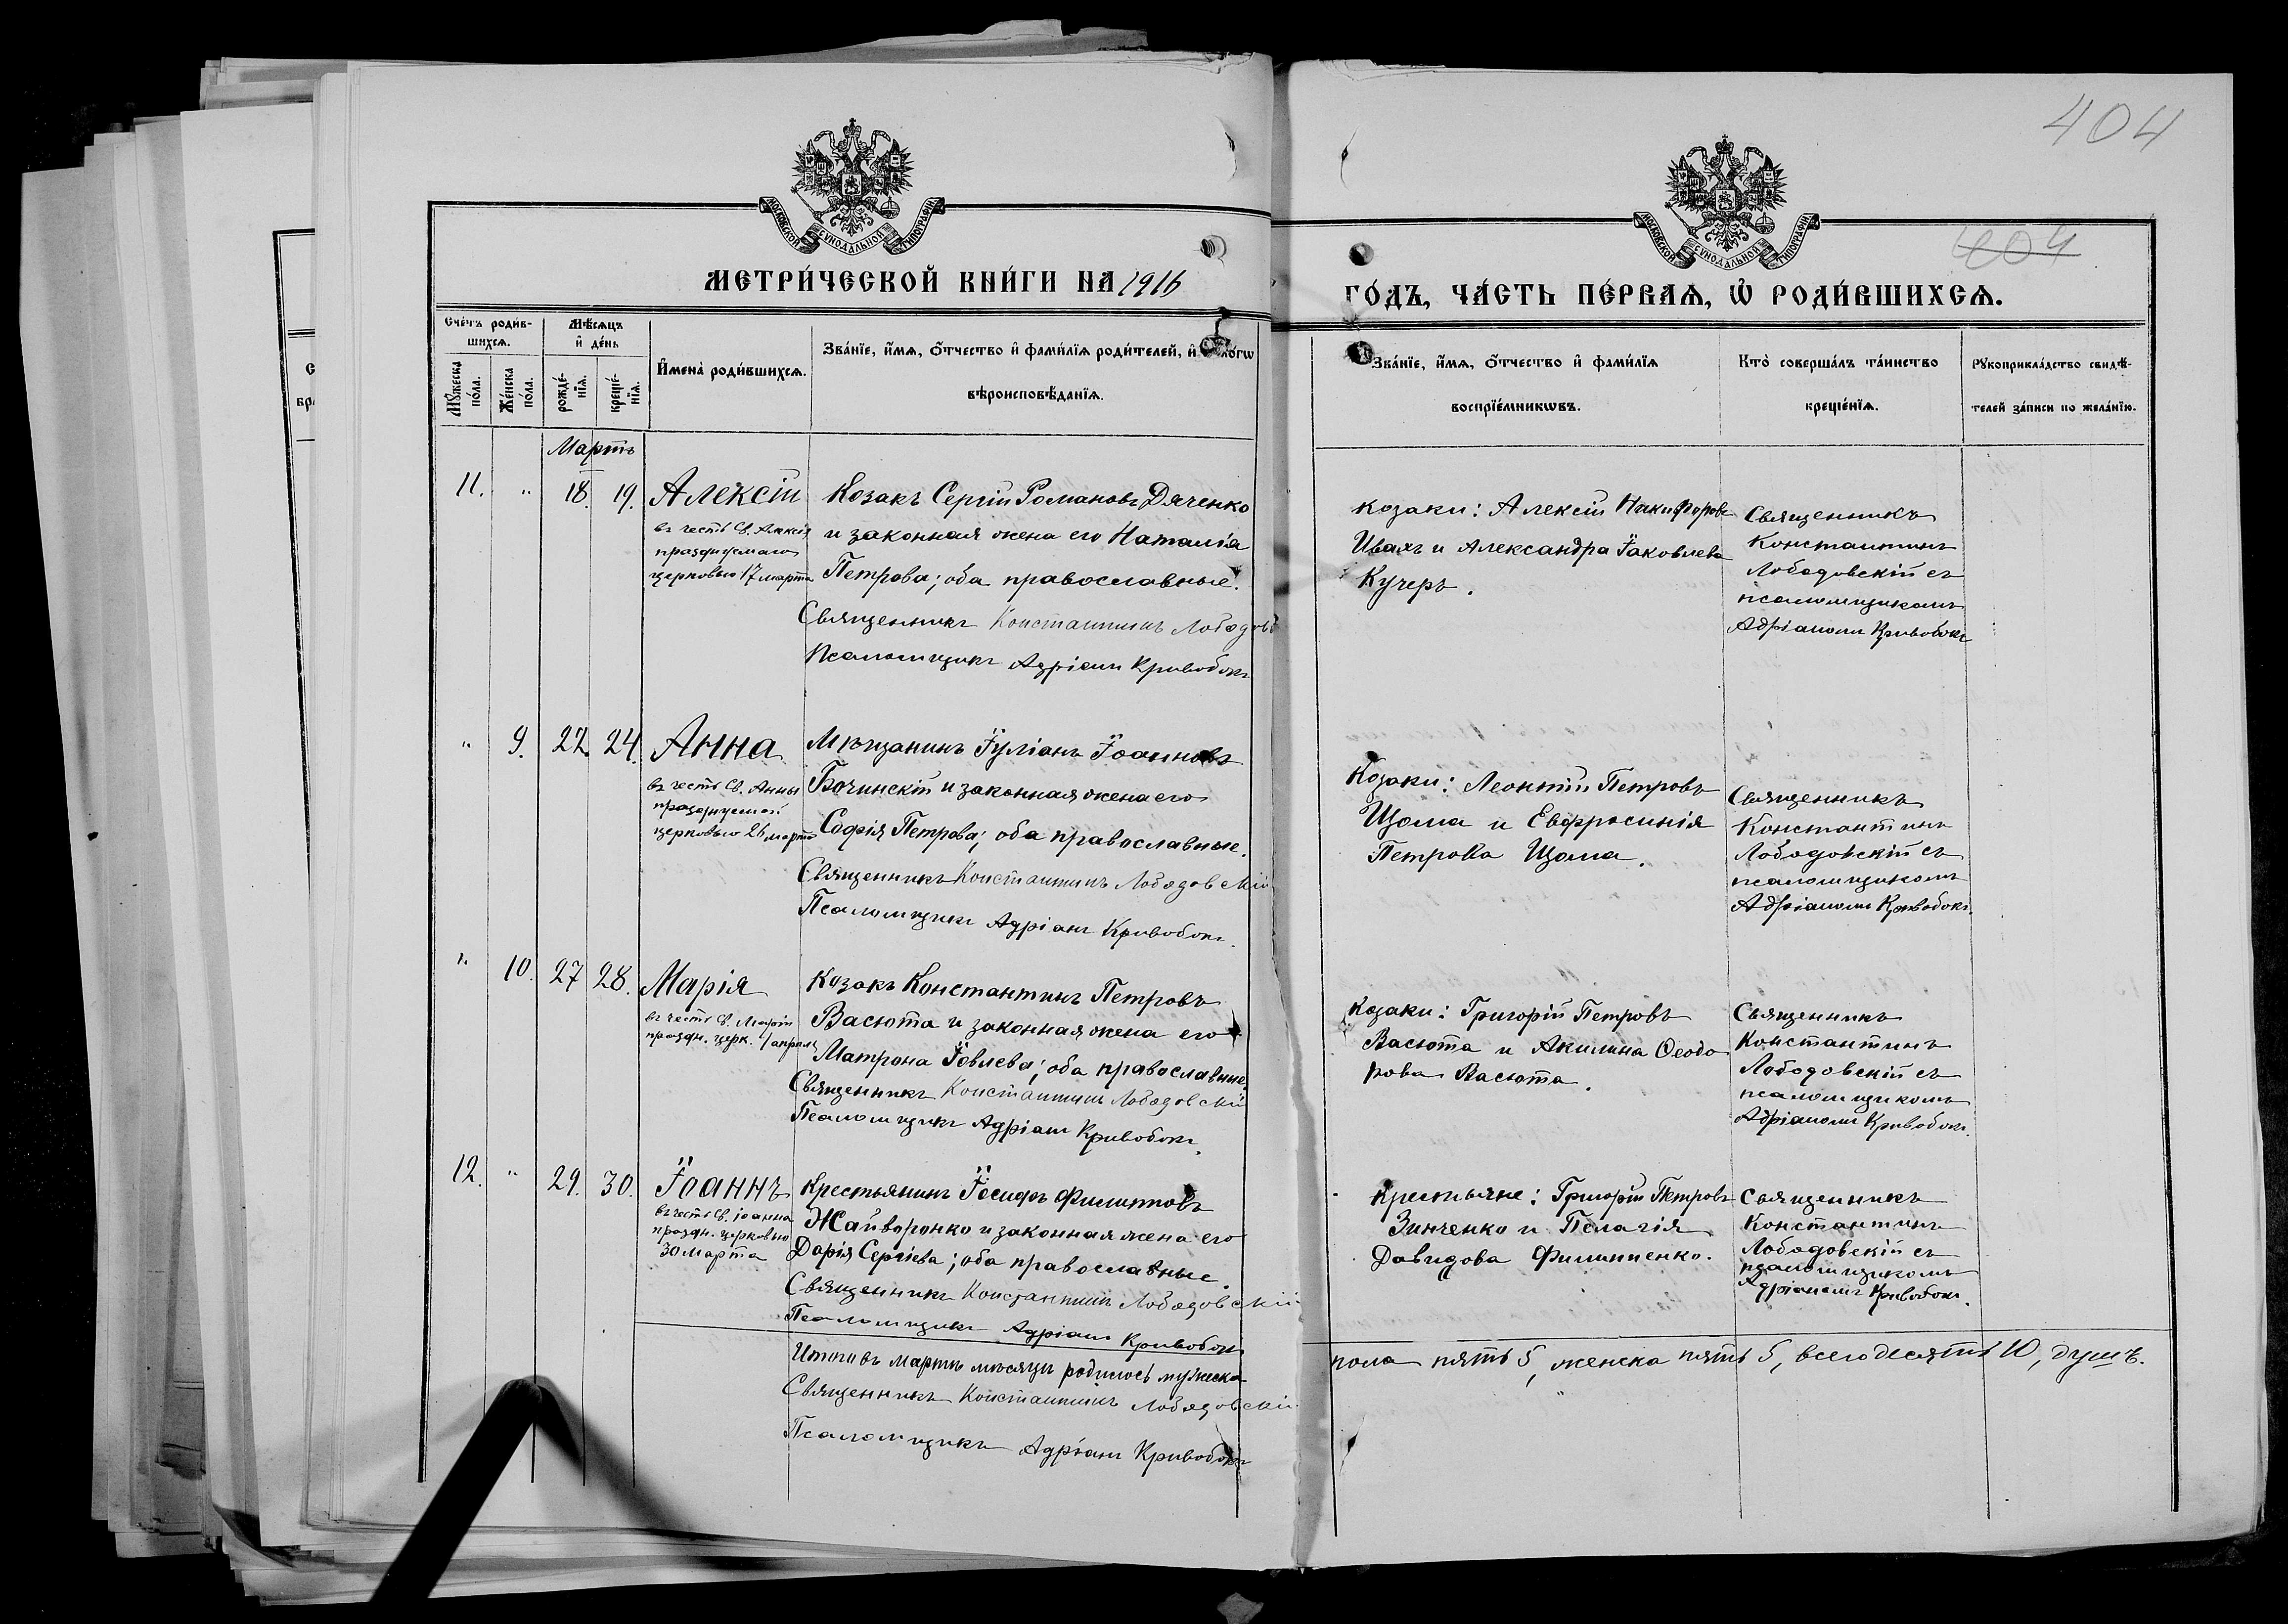 404
МОСКОВСКОЙ СѴНОДАЛЬНОЙ ТИПОГРАФІИ
МОСКОВСКОЙ СѴНОДАЛЬНОЙ ТИПОГРАФІИ
404
МЕТРИ́ЧЕСКОЙ КНИ́ГИ НА 1916
ГО́ДЪ, ЧА́СТЬ ПЕ́РВАѦ, Ѡ РОДИ́ВШИХСѦ.
Сче́тъ роди́в-
шихсѧ.
Мꙋ́жеска по́ла.
Же́нска по́ла.
Мѣ́сѧцъ
и҆ де́нь
рожде́-
нїѧ.
креще́-
нїѧ.
И҆мена̀ роди́вшихсѧ.
Зва́нїе, и҆́мѧ, ѻ҆́тчество и҆ фами́лїѧ роди́телей, и҆
вѣроисповѣ́данїѧ.
Зва́нїе, и҆́мѧ, ѻ҆́тчество и҆ фами́лїѧ
воспрїе́мникѡвъ.
Кто̀ соверша́лъ та́инство
креще́нїѧ.
Рꙋкоприкла́дство свидѣ́-
телей за́писи по жела́нїю.
Мартъ
11. " 18. 19. Алексій
въ честь Св. Алексія
празднуемаго
церковью 17 марта
Козакъ Сергій Романовъ Дяченко
и законная жена его Наталія
Петрова; оба православные.
Священникъ Константинъ Лободовс
Псаломщикъ Адріанъ Кривобокъ
козаки: Алексій Никифоровъ
Ивахъ и Александра Іаковлева
Кучеръ.
Священникъ
Константинъ
Лободовскій съ
псаломщикомъ
Адріаномъ Кривобокъ
" 9. 22. 24. Анна
въ честь Св. Анны
празднуемой
церковью 26 марта
Мѣщанинъ Іуліанъ Іоанновъ
Бочинскій и законная жена его
Софія Петрова; оба православные.
Священникъ Константинъ Лободовскій
Псаломщикъ Адріанъ Кривобокъ.
Козаки: Леонтій Петровъ
Щома и Евфросинія
Петрова Щома.
Священникъ
Константинъ
Лободовскій съ
псаломщикомъ
Адріаномъ Кривобокъ.
" 10. 27 28. Марія
въ честь Св. Маріи
праздн. церк. 1 апрѣля
Козакъ Константинъ Петровъ
Васюта и законная жена его
Матрона Іовлева; оба православные.
Священникъ Константинъ Лободовскій
Псаломщикъ Адріанъ Кривобокъ.
Козаки: Григорій Петровъ
Васюта и Акилина Ѳеодо
рова Васюта.
Священникъ
Константинъ
Лободовскій съ
псаломщикомъ
Адріаномъ Кривобокъ.
12. " 29. 30. Іоаннъ
въ честь Св. Іоанна
праздн. церковью
30 Марта
Крестьянинъ Іосифъ Филиповъ
Жайворонко и законная жена его
Дарія Сергіева; оба православные.
Священникъ Константинъ Лободовскій
Псаломщикъ Адріанъ Кривобокъ
Крестьяне: Григорій Петровъ
Зинченко и Пелагія
Давидова Филипенко.
Священникъ
Константинъ
Лободовскій съ
псаломщикомъ
Адріаномъ Кривобокъ.
Итого въ мартѣ мѣсяцѣ родилось мужеска
пола пять 5, женска пять 5, всего десять 10, душъ.
Священникъ Константинъ Лободовскій
Псаломщикъ Адріанъ Кривобокъ